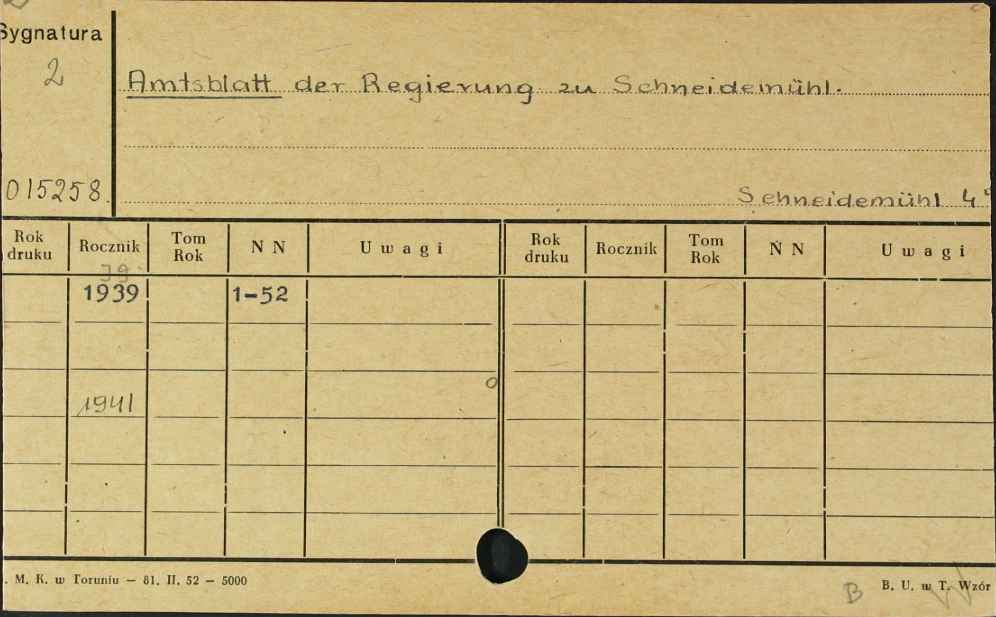 Sygnatura
2
Amtsblatt der Regierung zu Schneidemühl.
015258
Schneidemühl 4°
Rok druku Rocznik Tom Rok N N Uwagi Rok druku Rocznik Tom Rok N N Uwagi
Jg.
1939 1-52
1941
. M. K. w Toruniu — 81. II. 52 — 5000
B
B. U. w T. Wzór